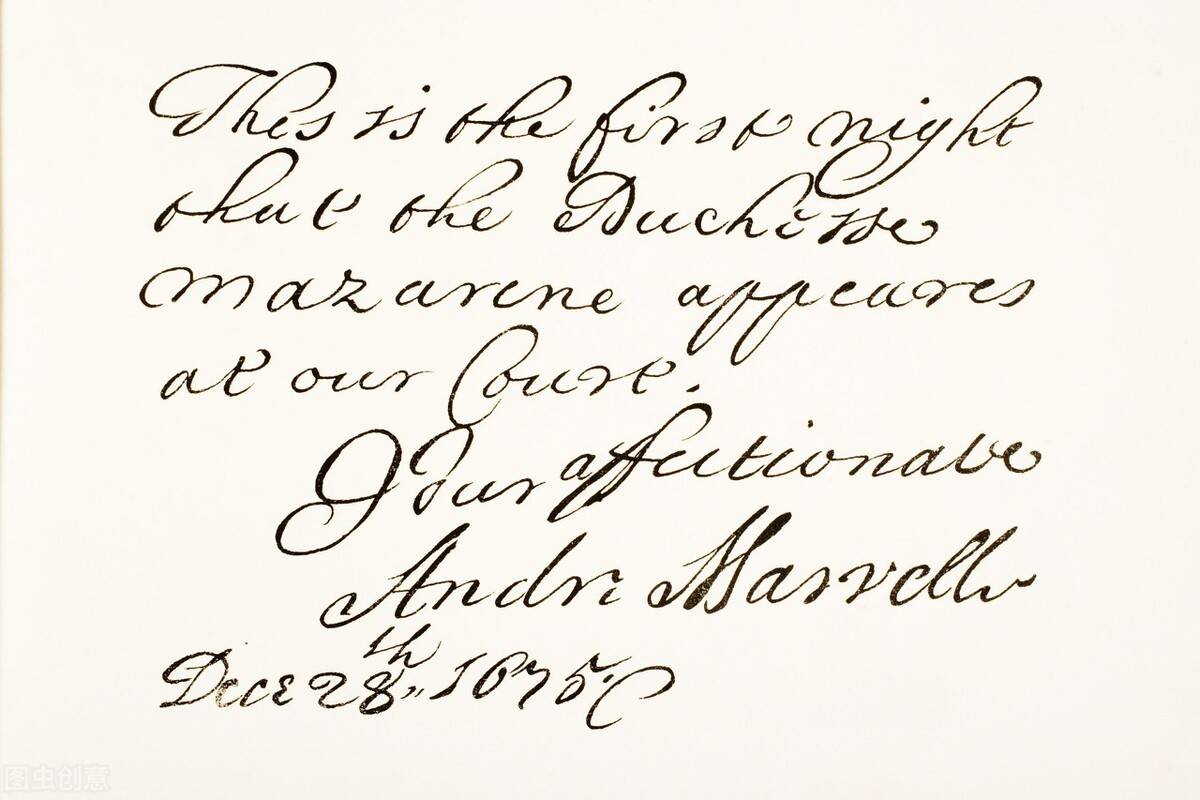 This is the first night
that the Duchesse
Mazarine appeares
at our Court.
Your affectionate
Andr: Marvell
Dece 28th 1675.
图虫创意